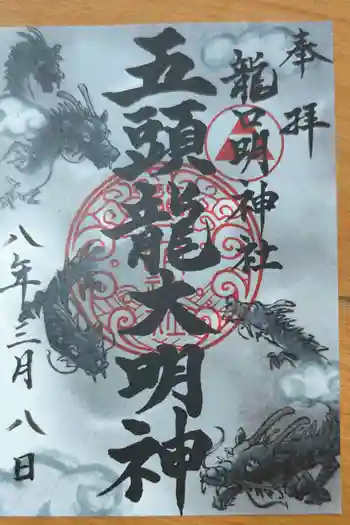 奉拝
龍口明神社
五頭龍大明神
八年三月八日